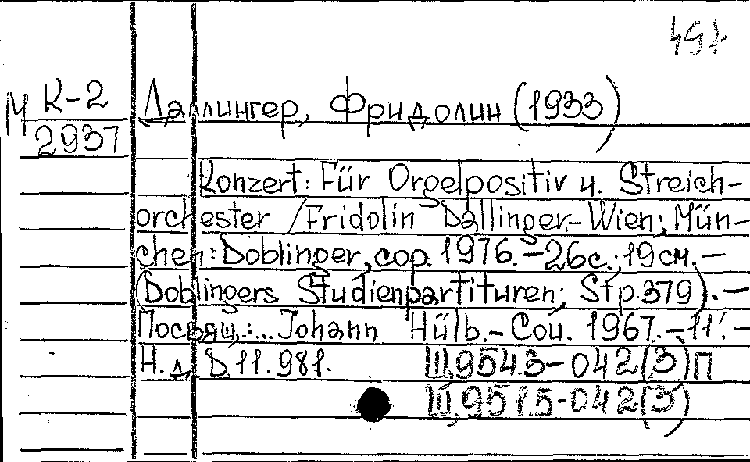 М К-2
2937
Даллингер, Фридолин (1933)
Konzert: Für Orgelpositiv u. Streich-
orchester / Fridolin Dallinger.- Wien; Mün-
chen: Doblinger, cop. 1976.-26с.; 19см.-
(Doblingers Studienpartituren; Stp.379).-
Посвящ.:.. Johann Hülb.- Соч. 1967.-11'.-
Н.д. D.11.981. Щ954.3-042(3)П
Щ957.5-042(3)